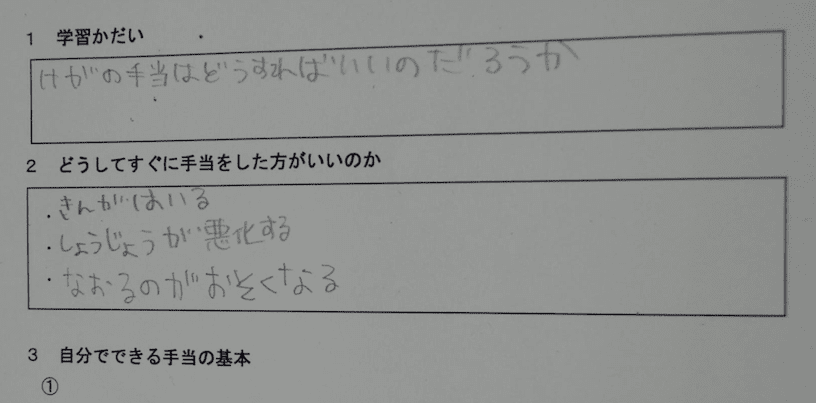 1 学習かだい
けがの手当はどうすればいいのだろうか
2 どうしてすぐに手当をした方がいいのか
・きんがはいる
・しょうじょうが悪化する
・なおるのがおそくなる
3 自分でできる手当の基本
①